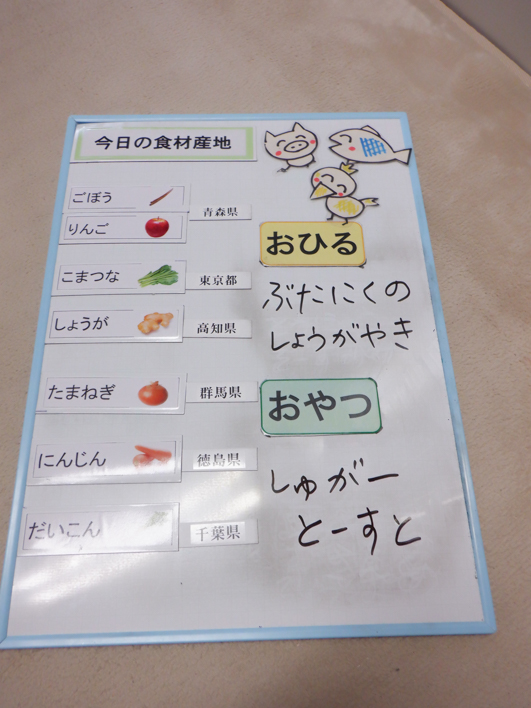 今日の食材産地
ごぼう
りんご
青森県
こまつな
東京都
しょうが
高知県
たまねぎ
群馬県
にんじん
徳島県
だいこん
千葉県
おひる
ぶたにくの
しょうがやき
おやつ
しゅがー
とーすと